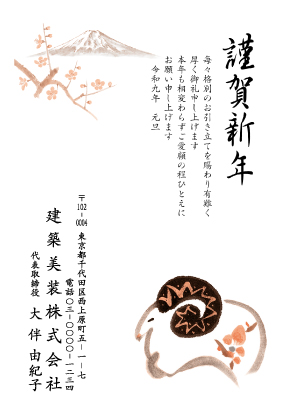 謹賀新年
毎々格別のお引き立てを賜わり有難く
厚く御礼申し上げます
本年も相変わらずご愛顧の程ひとえに
お願い申し上げます
令和九年 元旦
〒102-0004
東京都千代田区西上原町五-一-七
電話〇三-〇〇〇〇-一二三四
建築美装株式会社
代表取締役 大伴由紀子